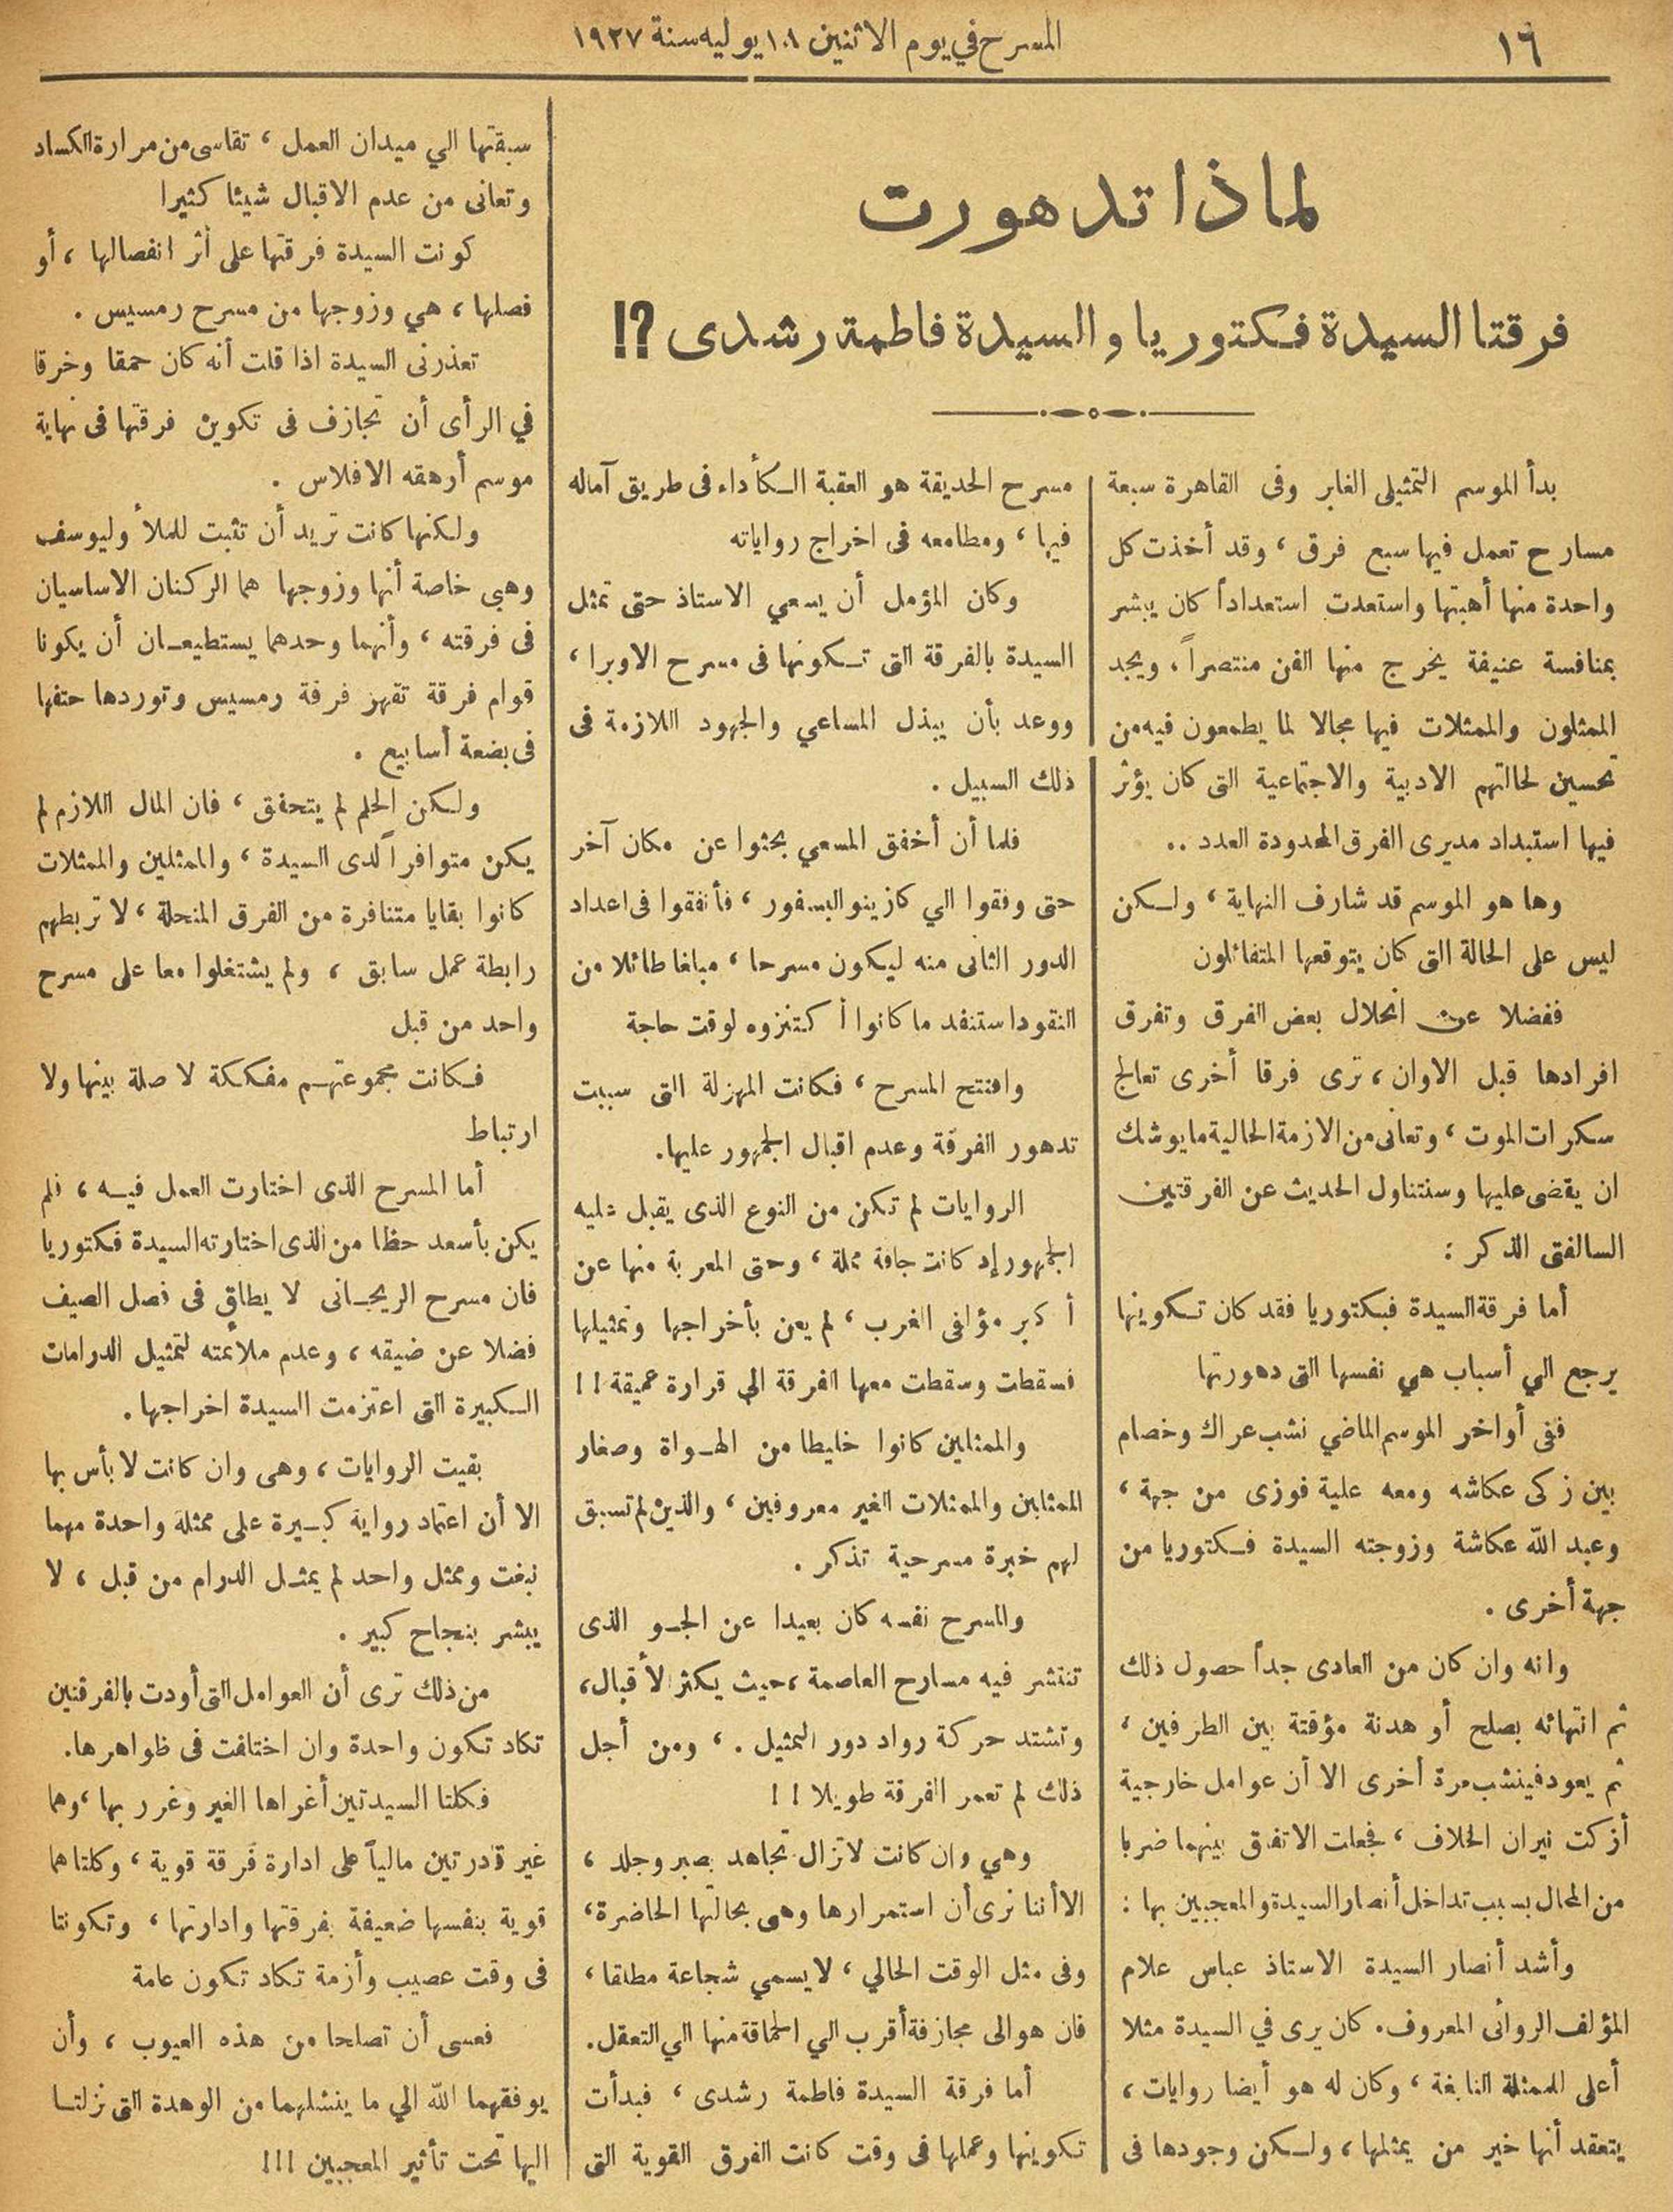 ١٦
المسرح في يوم الاثنين ١٨ يوليه سنة ١٩٢٧
لماذا تدهورت
فرقتا السيدة فكتوريا والسيدة فاطمة رشدى ?!
بدأ الموسم التمثيلى الغابر وفى القاهرة سبعة
مسارح تعمل فيها سبع فرق ، وقد أخذت كل
واحدة منها أهبتها واستعدت استعداداً كان يبشر
بمنافسة عنيفة يخرج منها الفن منتصراً ، ويجد
الممثلون والممثلات فيها مجالا لما يطمعون فيه من
تحسين لحالتهم الادبية والاجتماعية التى كان يؤثر
فيها استبداد مديرى الفرق المحدودة العدد ..
وها هو الموسم قد شارف النهاية ، ولكن
ليس على الحالة التى كان يتوقعها المتفائلون
ففضلا عن انحلال بعض الفرق وتفرق
افرادها قبل الاوان ، ترى فرقا أخرى تعالج
سكرات الموت ، وتعانى من الازمة الحالية ما يوشك
ان يقضى عليها وسنتناول الحديث عن الفرقتين
السالفتى الذكر :
أما فرقة السيدة فبكتوريا فقد كان تكوينها
يرجع الي أسباب هي نفسها التى دهورتها
ففى أواخر الموسم الماضي نشب عراك وخصام
بين زكى عكاشه ومعه علية فوزى من جهة ،
وعبد الله عكاشة وزوجته السيدة فكتوريا من
جهة أخرى .
وانه وان كان من العادى جداً حصول ذلك
ثم انتهائه بصلح أو هدنة مؤقتة بين الطرفين ،
ثم يعود فينشب مرة أخرى الا أن عوامل خارجية
أزكت نيران الخلاف ، فجعلت الاتفاق بينهما ضربا
من المحال بسبب تداخل أنصار السيدة والمعجبين بها :
وأشد أنصار السيدة الاستاذ عباس علام
المؤلف الروائى المعروف . كان يرى في السيدة مثلا
أعلى للممثلة النابغة ، وكان له هو أيضا روايات ،
يتعقد أنها خير من يمثلها ، ولكن وجودها فى
مسرح الحديقة هو العقبة الكأداء فى طريق آماله
فيها ، ومطامعه فى اخراج رواياته
وكان المؤمل أن يسعي الاستاذ حتى تمثل
السيدة بالفرقة التى تكونها فى مسرح الاوبرا ،
ووعد بأن يبذل المساعي والجهود اللازمة فى
ذلك السبيل .
فلما أن أخفق المسعي بحثوا عن مكان آخر
حتى وفقوا الي كازينو البسفور ، فأنفقوا فى اعداد
الدور الثانى منه ليكون مسرحا ، مبلغا طائلا من
النقود استنفد ما كانوا أكتنزوه لوقت حاجة
وافتتح المسرح ، فكانت المهزلة التى سببت
تدهور الفرقة وعدم اقبال الجمهور عليها .
الروايات لم تكن من النوع الذى يقبل عليه
الجمهور إد كانت جافة مملة ، وحتى المعربة منها عن
أكبر مؤلفى الغرب ، لم يعن بأخراجها وتمثيلها
فسقطت وسقطت معها الفرقة الي قرارة عميقة !!
والممثلين كانوا خليطا من الهواة وصغار
الممثلين والممثلات الغير معروفين ، والذين لم تسبق
لهم خبرة مسرحية تذكر .
والمسرح نفسه كان بعيدا عن الجو الذى
تنتشر فيه مسارح العاصمة ، حيث يكثر الأقبال ،
وتشتد حركة رواد دور التمثيل . ، ومن أجل
ذلك لم تعمر الفرقة طويلا !!
وهي وان كانت لاتزال تجاهد بصبر وجلد ،
الا أننا نرى أن استمرارها وهى بحالتها الحاضرة ،
وفى مثل الوقت الحالي ، لا يسمي شجاعة مطلقا ،
فان هو الى مجازفة أقرب الي الحماقة منها الي التعقل .
أما فرقة السيدة فاطمة رشدى ، فبدأت
تكوينها وعملها فى وقت كانت الفرق القوية التى
سبقتها الي ميدان العمل ، تقاسى من مرارة الكساد
وتعانى من عدم الاقبال شيئا كثيرا
كونت السيدة فرقتها على أثر انفصالها ، أو
فصلها ، هي وزوجها من مسرح رمسيس .
تعذرنى السيدة اذا قلت أنه كان حمقا وخرقا
في الرأى أن تجازف فى تكوين فرقتها فى نهاية
موسم أرهقه الافلاس .
ولكنها كانت تريد أن تثبت للملأ وليوسف
وهبى خاصة أنها وزوجها هما الركنان الاساسيان
فى فرقته ، وأنهما وحدهما يستطيعان أن يكونا
قوام فرقة تقهز فرفة رمسيس وتوردها حتفها
فى بضعة أسابيع .
ولكن الحلم لم يتحقق ، فان المال اللازم لم
يكن متوافراً لدى السيدة ، والممثلين والممثلات
كانوا بقايا متنافرة من الفرق المنحلة ، لا تربطهم
رابطة عمل سابق ، ولم يشتغلوا معا على مسرح
واحد من قبل
فكانت مجموعتهم مفككة لا صلة بينها ولا
ارتباط
أما المسرح الذى اختارت العمل فيه ، فلم
يكن بأسعد حظا من الذى اختارته السيدة فكتوريا
فان مسرح الريحانى لا يطاق فى فصل الصيف
فضلا عن ضيقه ، وعدم ملائمته لتمثيل الدرامات
الكبيرة التى اعتزمت السيدة اخراجها .
بقيت الروايات ، وهى وان كانت لا بأس بها
الا أن اعتماد رواية كبيرة على ممثلة واحدة مهما
نبغت وممثل واحد لم يمثل الدرام من قبل ، لا
يبشر بنجاح كبير .
من ذلك ترى أن العوامل التى أودت بالفرقتين
تكاد تكون واحدة وان اختلفت فى ظواهرها .
فكلتا السيدتين أغراها الغير وغرر بها ، وهما
غير قادرتين مالياً على ادارة فرقة قوية ، وكلتاهما
قوية بنفسها ضعيفة بفرقتها وادارتها ، وتكونتا
فى وقت عصيب وأزمة تكاد تكون عامة
فعسى أن تصلحا من هذه العيوب ، وأن
يوفقهما الله الي ما ينشلهما من الوهدة التى نزلتا
اليها تحت تأثير المعجبين !!!